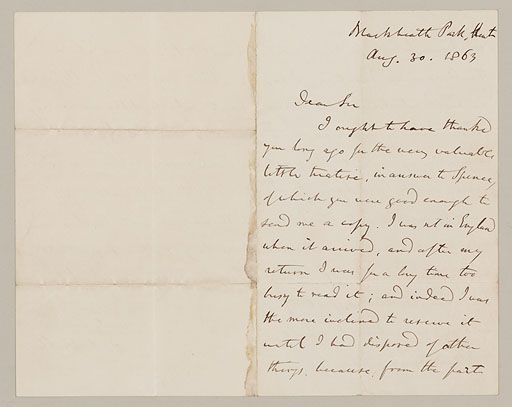 Blackheath Park, Kent
Aug. 30. 1863
Dear Sir
I ought to have thanked
you long ago for the very valuable
little treatise, in answer to Spencer,
of which you were good enough to
send me a copy. I was not in England
when it arrived, and after my
return I was for a long time too
busy to read it; and indeed I was
the more inclined to reserve it
until I had disposed of other
things, because, from the part